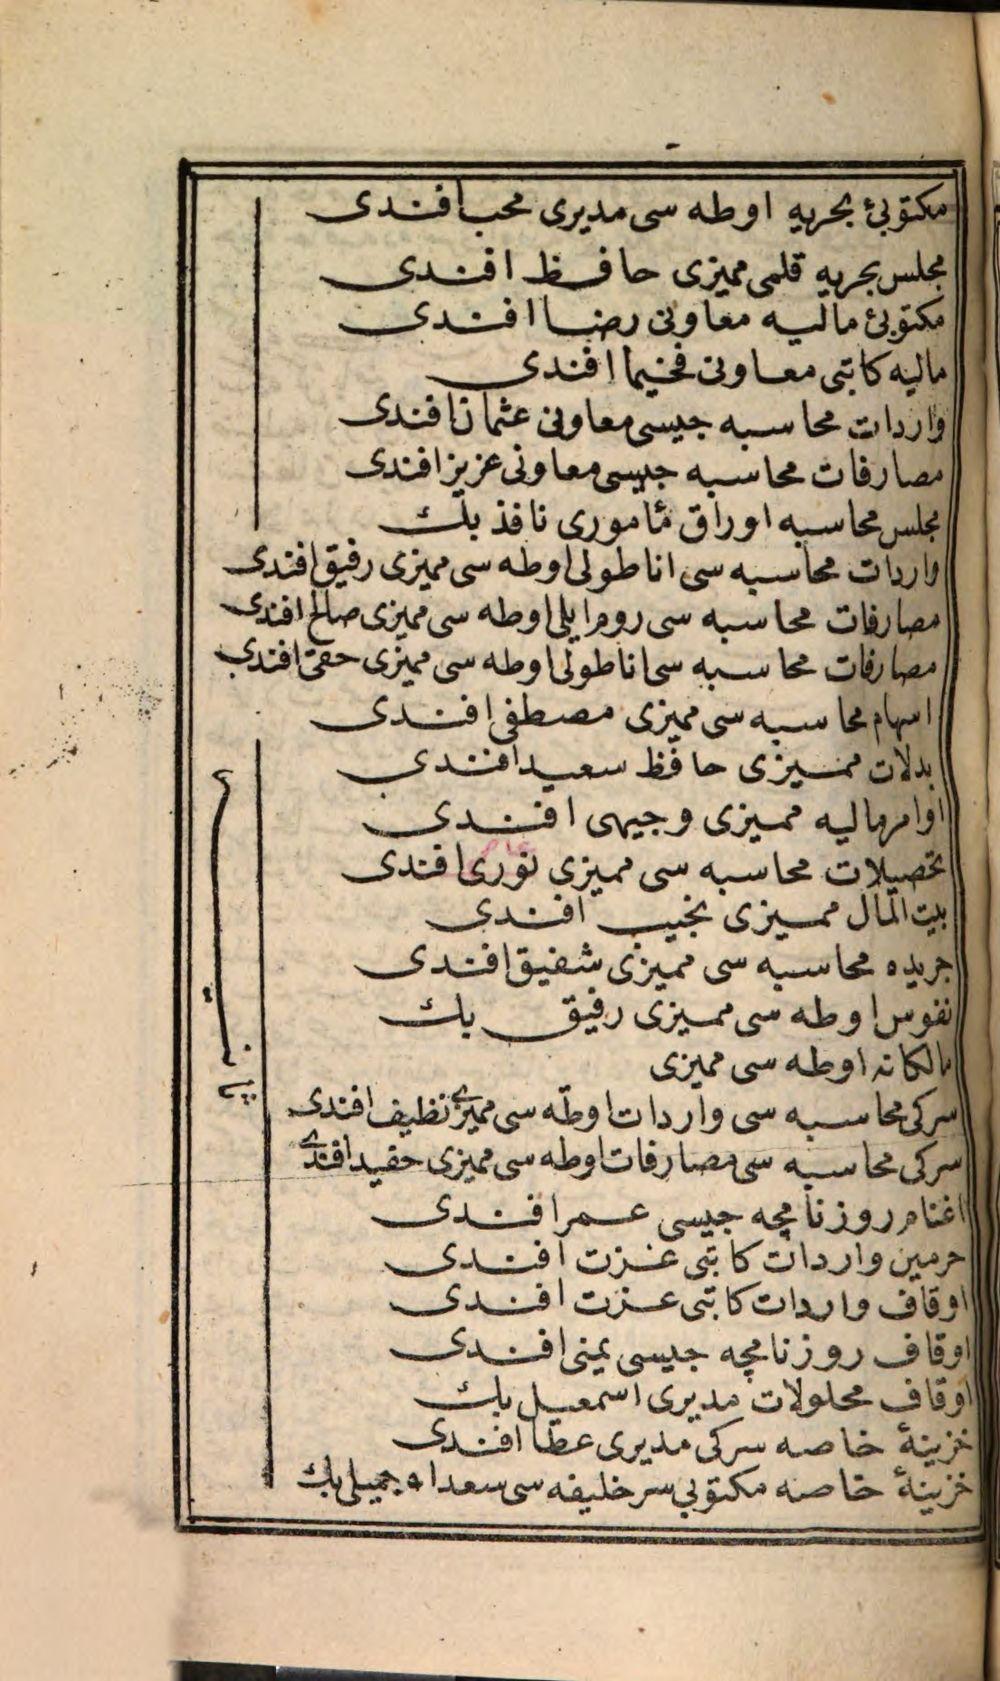 مكتوبئ بحريه اوطه سى مديرى محب افندى
مجلس بحريه قلمى مميزى حافظ افندى
مكتوبئ ماليه معاونى رضا افندى
ماليه كاتبى معاونى فخيما افندى
واردات محاسبه جيسى معاونى عثمان افندى
مصارفات محاسبه جيسى معاونى عزيز افندى
مجلس محاسبه اوراق مأمورى نافذ بك
واردات محاسبه سى اناطولى اوطه سى مميزى رفيق افندى
مصارفات محاسبه سى روم ايلى اوطه سى مميزى صالح افندى
مصارفات محاسبه سى اناطولى اوطه سى مميزى حقى افندى
اسهام محاسبه سى مميزى مصطفى افندى
بدلات مميزى حافظ سعيد افندى
اوامر ماليه مميزى وجيهى افندى
تحصيلات محاسبه سى مميزى نورى افندى
بيت المال مميزى نجيب افندى
جريده محاسبه سى مميزى شفيق افندى
نفوس اوطه سى مميزى رفيق بك
مالكانه اوطه سى مميزى
سركى محاسبه سى واردات اوطه سى مميزى نظيف افندى
سركى محاسبه سى مصارفات اوطه سى مميزى حفيد افندى
اغنام روزنامچه جيسى عمر افندى
حرمين واردات كاتبى عزت افندى
اوقاف واردات كاتبى عزت افندى
اوقاف روزنامچه جيسى يمنى افندى
اوقاف محلولات مديرى اسمعيل بك
خزينۀ خاصه سركى مديرى عطا افندى
خزينۀ خاصه مكتوبى سرخليفه سى سعدا * جميلى بك